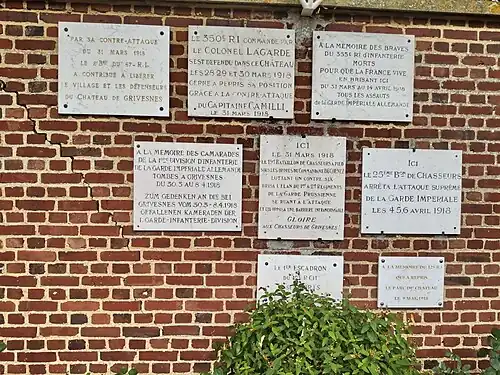 PAR SA CONTRE-ATTAQUE
DU 31 MARS 1918
LE 1er Bon DU 67e R.I.
A CONTRIBUÉ À LIBÉRER
LE VILLAGE ET LES DÉFENSEURS
DU CHÂTEAU DE GRIVESNES
LE 350e RI COMMANDÉ PAR
LE COLONEL LAGARDE
S'EST DÉFENDU DANS CE CHÂTEAU
LES 28.29 ET 30 MARS 1918
ET A REPRIS SA POSITION
GRÂCE À LA CONTRE ATTAQUE
DU CAPITAINE CAMILLI
LE 31 MARS 1918
À LA MÉMOIRE DES BRAVES
DU 355e RÉGt D'INFANTERIE
MORTS
POUR QUE LA FRANCE VIVE
EN BRISANT ICI
DU 31 MARS AU 14 AVRIL 1918
TOUS LES ASSAUTS
DE LA GARDE IMPÉRIALE ALLEMANDE
A LA MÉMOIRE DES CAMARADES
DE LA 1ère DIVISION D'INFANTERIE
DE LA GARDE IMPÉRIALE ALLEMANDE
TOMBÉS A GRIVESNES
DU 30.3 AU 8.4.1918
ZUM GEDENKEN AN DIE BEI
GRIVESNES VOM 30.3-8.4.1918
GEFALLENEN KAMERADEN DER
1. GARDE-INFANTERIE-DIVISION
ICI
LE 31 MARS 1918
LUTTANT UN CONTRE SIX
BRISA L'ÉLAN DE
DE LA GARDE PRUSSIENNE
SE RUANT A L'ATTAQUE
GLOIRE
AUX CHASSEURS DE GRIVESNES
ICI
LE 25ème Bon DE CHASSEURS
ARRÊTA L'ATTAQUE SUPRÊME
DE LA GARDE IMPÉRIALE
LES 4.5.6 AVRIL 1918
LE 1er ESCADRON
A LA MÉMOIRE DU
QUI A REPRIS
LE PARC DU CHÂTEAU
LE 9 MAI 1918